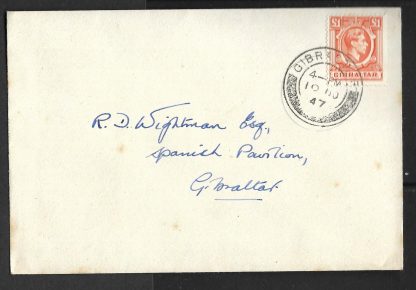 £1 £1
GIBRALTAR
GIBRALTAR
4-PM
10
47
R. D. Wightman Esq,
Spanish Pavilion,
Gibraltar.